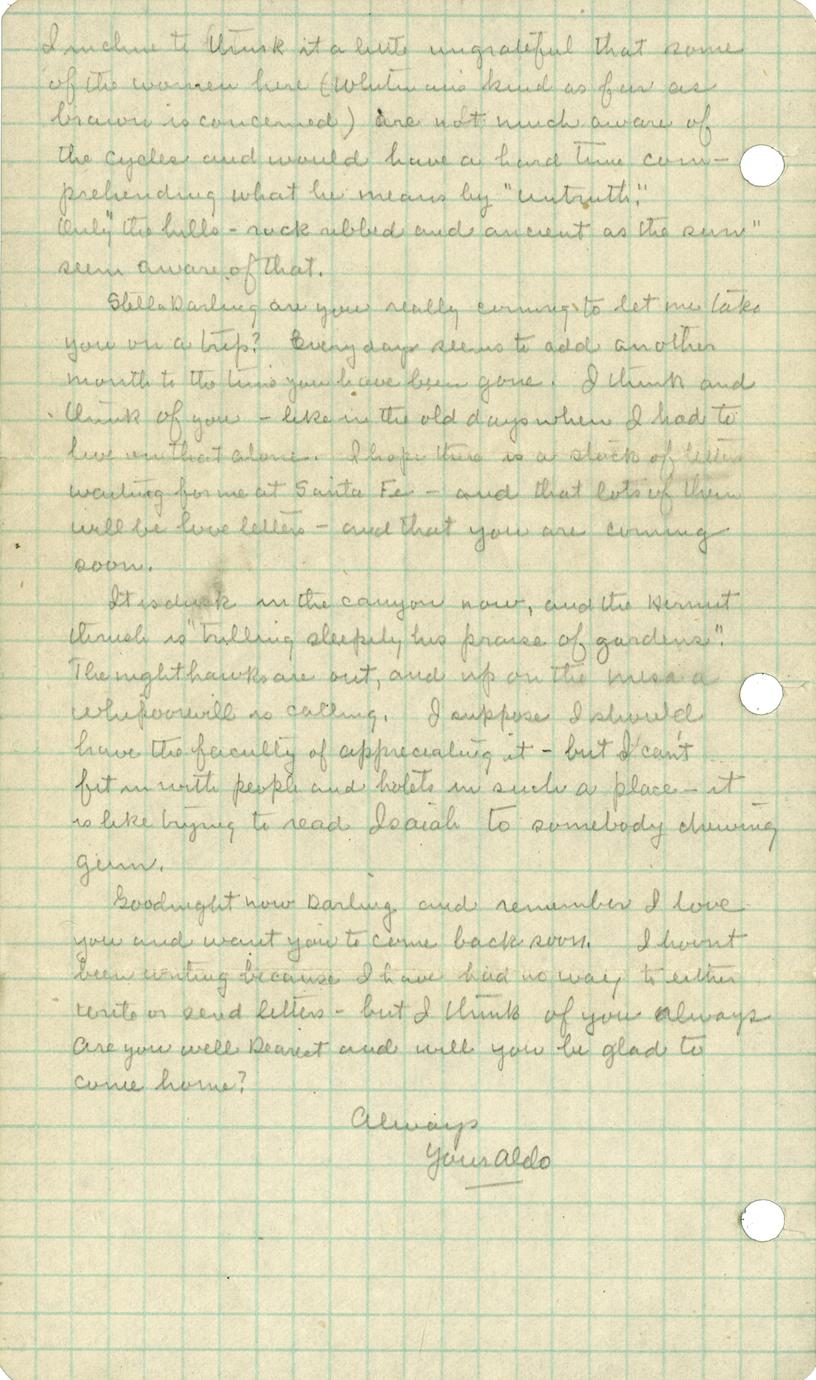 I incline to think it a little ungrateful that some
of the women here (Whitman's kind as far as
brawn is concerned) are not much aware of
the cycles and would have a hard time com-
prehending what he means by "untruth."
Only "the hills - rock ribbed and ancient as the sun"
seem aware of that.
Stella Darling are you really coming to let me take
you on a trip? Every day seems to add another
month to the time you have been gone. I think and
think of you - like in the old days when I had to
live on that alone. I hope there is a stack of letters
waiting for me at Santa Fe - and that lots of them
will be love letters - and that you are coming
soon.
It is dusk in the canyon now, and the Hermit
thrush is "trilling sleepily his praise of gardens".
The nighthawks are out, and up on the mesa a
whipoorwill is calling. I suppose I should
have the faculty of appreciating it - but I can't
fit in with people and hotels in such a place - it
is like trying to read Isaiah to somebody chewing
gum.
Goodnight now Darling and remember I love
you and want you to come back soon. I havnt
been writing because I have had no way to either
write or send letters - but I think of you always
Are you well Dearest and will you be glad to
come home?
Always
Your Aldo